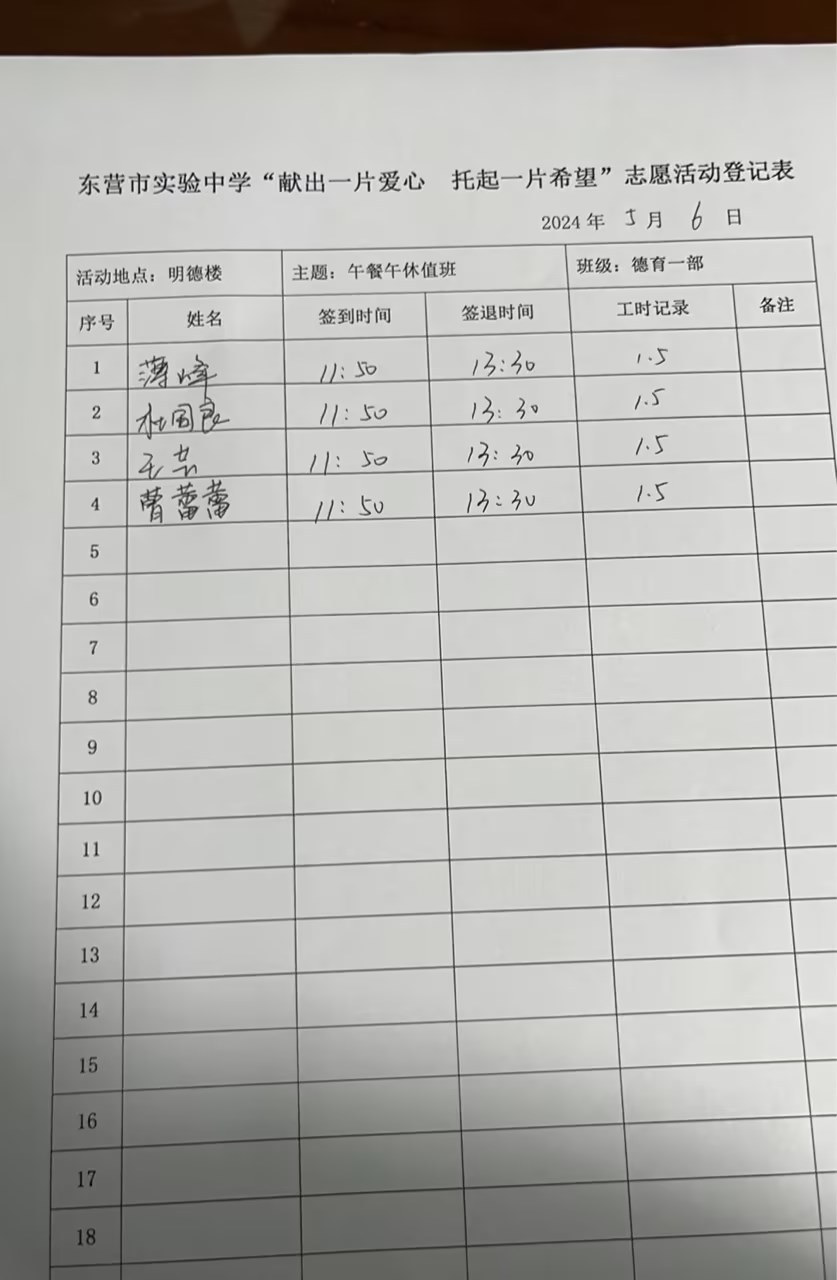 东营市实验中学“献出一片爱心 托起一片希望”志愿活动登记表
2024 年 5 月 6 日
活动地点：明德楼 主题：午餐午休值班 班级：德育一部
序号 姓名 签到时间 签退时间 工时记录 备注
1 薄峰 11:50 13:30 1.5
2 杜国良 11:50 13:30 1.5
3 王芸 11:50 13:30 1.5
4 曹蕾蕾 11:50 13:30 1.5
5
6
7
8
9
10
11
12
13
14
15
16
17
18